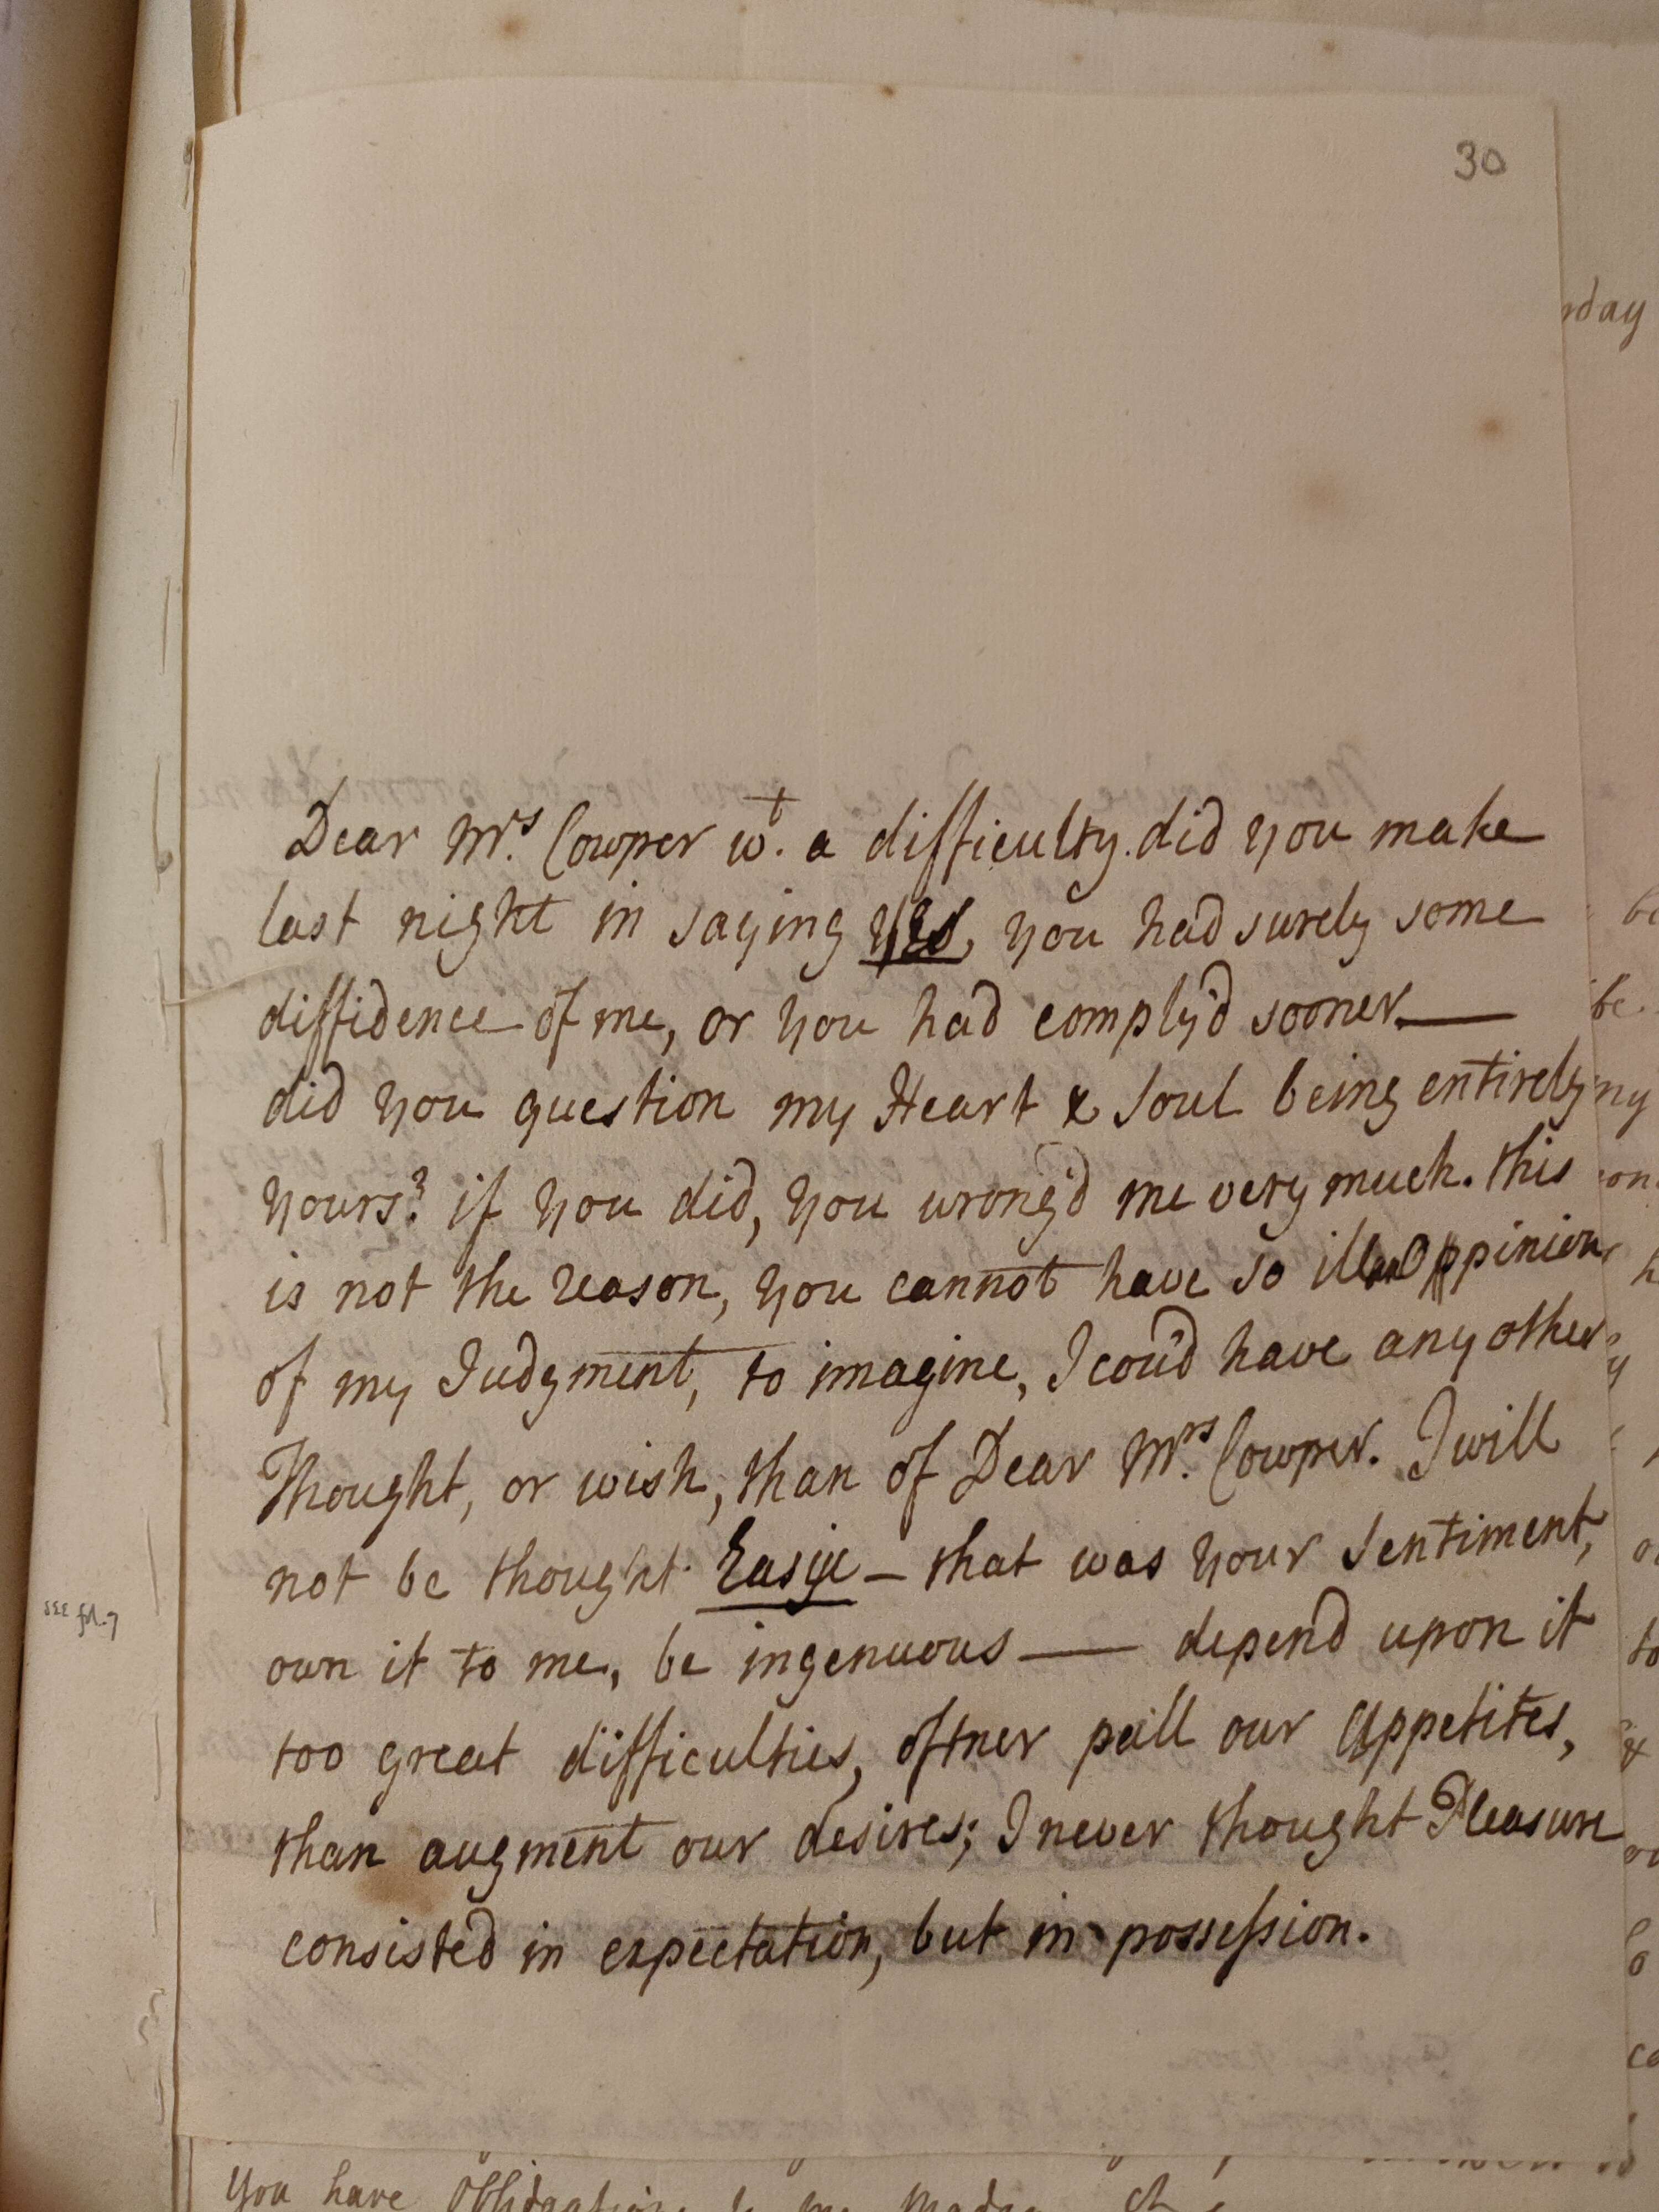 30
Dear Mrs. Cowper wt. a difficulty did you make
last night in saying yes, you had surely some
diffidence of me, or you had comply'd sooner ——
did you question my Heart & Soul being entirely
yours? if you did, you wrong'd me very much. this
is not the reason, you cannot have so ill an Oppinion
of my Judgment, to imagine, I cou'd have any other
Thought, or wish, than of Dear Mrs. Cowper. I will
not be thought Easye — that was your Sentiment,
own it to me, be ingenuous —— depend upon it
too great difficulties, oftner pall our Appetites,
than augment our desires; I never thought Pleasure
consisted in expectation, but in possession.
see fol. 7
rday
you have Obligations to me Madam